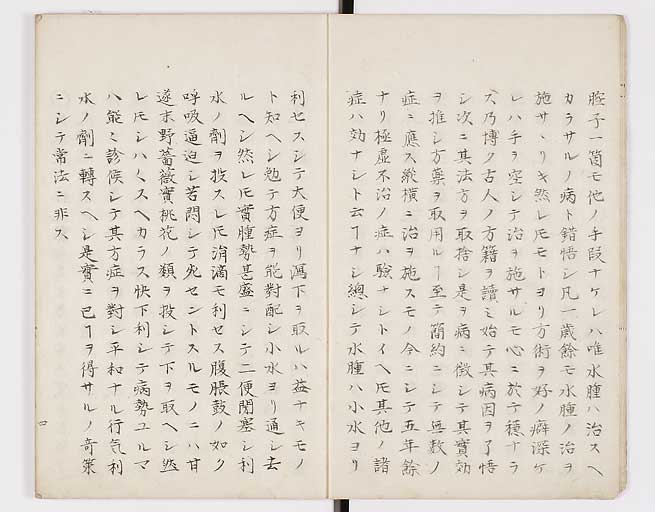 腔子一箇モ他ノ手段ナケレハ唯水腫ハ治スヘ
カラサルノ病ト錯悟シ凡一歳餘モ水腫ノ治ヲ
施サヽリキ然レ𪜈モトヨリ方術ヲ好ノ癖深ケ
レハ手ヲ空シテ治ヲ施サルモ心ニ於テ穏ナラ
ス乃博ク古人ノ方籍ヲ讀ミ始テ其病因ヲ了悟
シ次ニ其法方ヲ取捨シ是ヲ病ニ徴シテ其實効
ヲ推シ方藥ヲ取用ルヿ至テ簡約ニシテ無数ノ
症ニ應ス縱横ニ治ヲ施スモノ今ニシテ五年餘
ナリ極虚不治ノ症ハ驗ナシトイヘ𪜈其他ノ諸
症ハ効ナシト云ヿナシ總シテ水腫ハ小水ヨリ
利セスシテ大便ヨリ瀉下ヲ取ルハ益ナキモノ
ト知ヘシ勉テ方症ヲ能對配シ小水ヨリ通シ去
ルヘシ然レ𪜈實腫勢甚盛ニシテ二便閉塞シ利
水ノ劑ヲ投スレ𪜈涓滴モ利セス腹脹鼓ノ如ク
呼吸逼迫シ苦悶シテ死セントスルモノニハ甘
遂末野薔薇實桃花ノ類ヲ投シテ下ヲ取ヘシ然
レ𪜈シハ〱スヘカラス快下利シテ病勢ユルマ
ハ能ミ診候シテ其方症ヲ對シ平和ナル行気利
水ノ劑ニ轉スヘシ是實ニ已ヿヲ得サルノ奇策
ニシテ常法ニ非ス
四